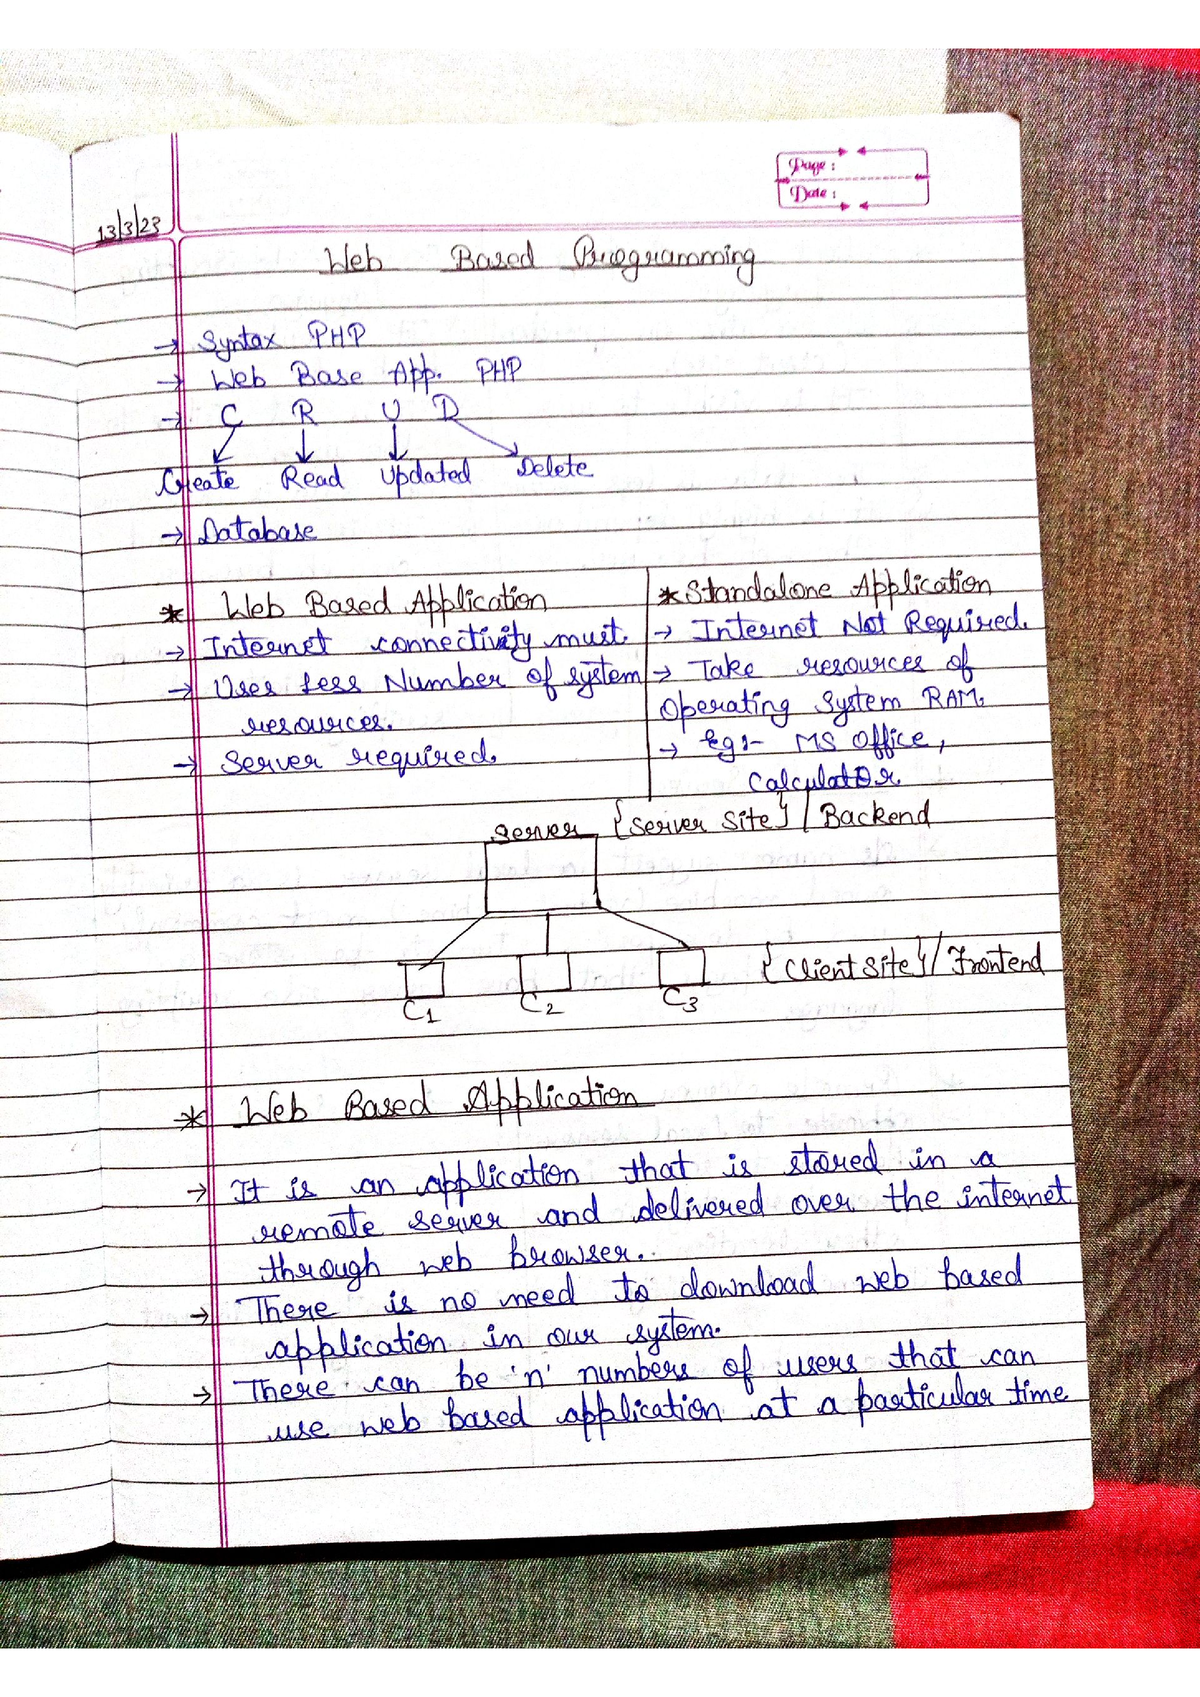 Page :
Date :
13/3/23
Web Based Programming
→ Syntax PHP
→ Web Base App. PHP
→ C R U D
Create Read Updated Delete
→ Database
* Web Based Application
→ Internet connectivity must.
→ Uses less Number of system
resources.
→ Server required.
* Standalone Application
→ Internet Not Required.
→ Take resources of
Operating System RAM.
→ Eg:- MS Office,
Calculator.
Server {Server Site} / Backend
{Client Site} / Frontend
C1 C2 C3
* Web Based Application
→ It is an application that is stored in a
remote server and delivered over the internet
through web browser.
→ There is no need to download web based
application in our system.
→ There can be 'n' numbers of users that can
use web based application at a particular time